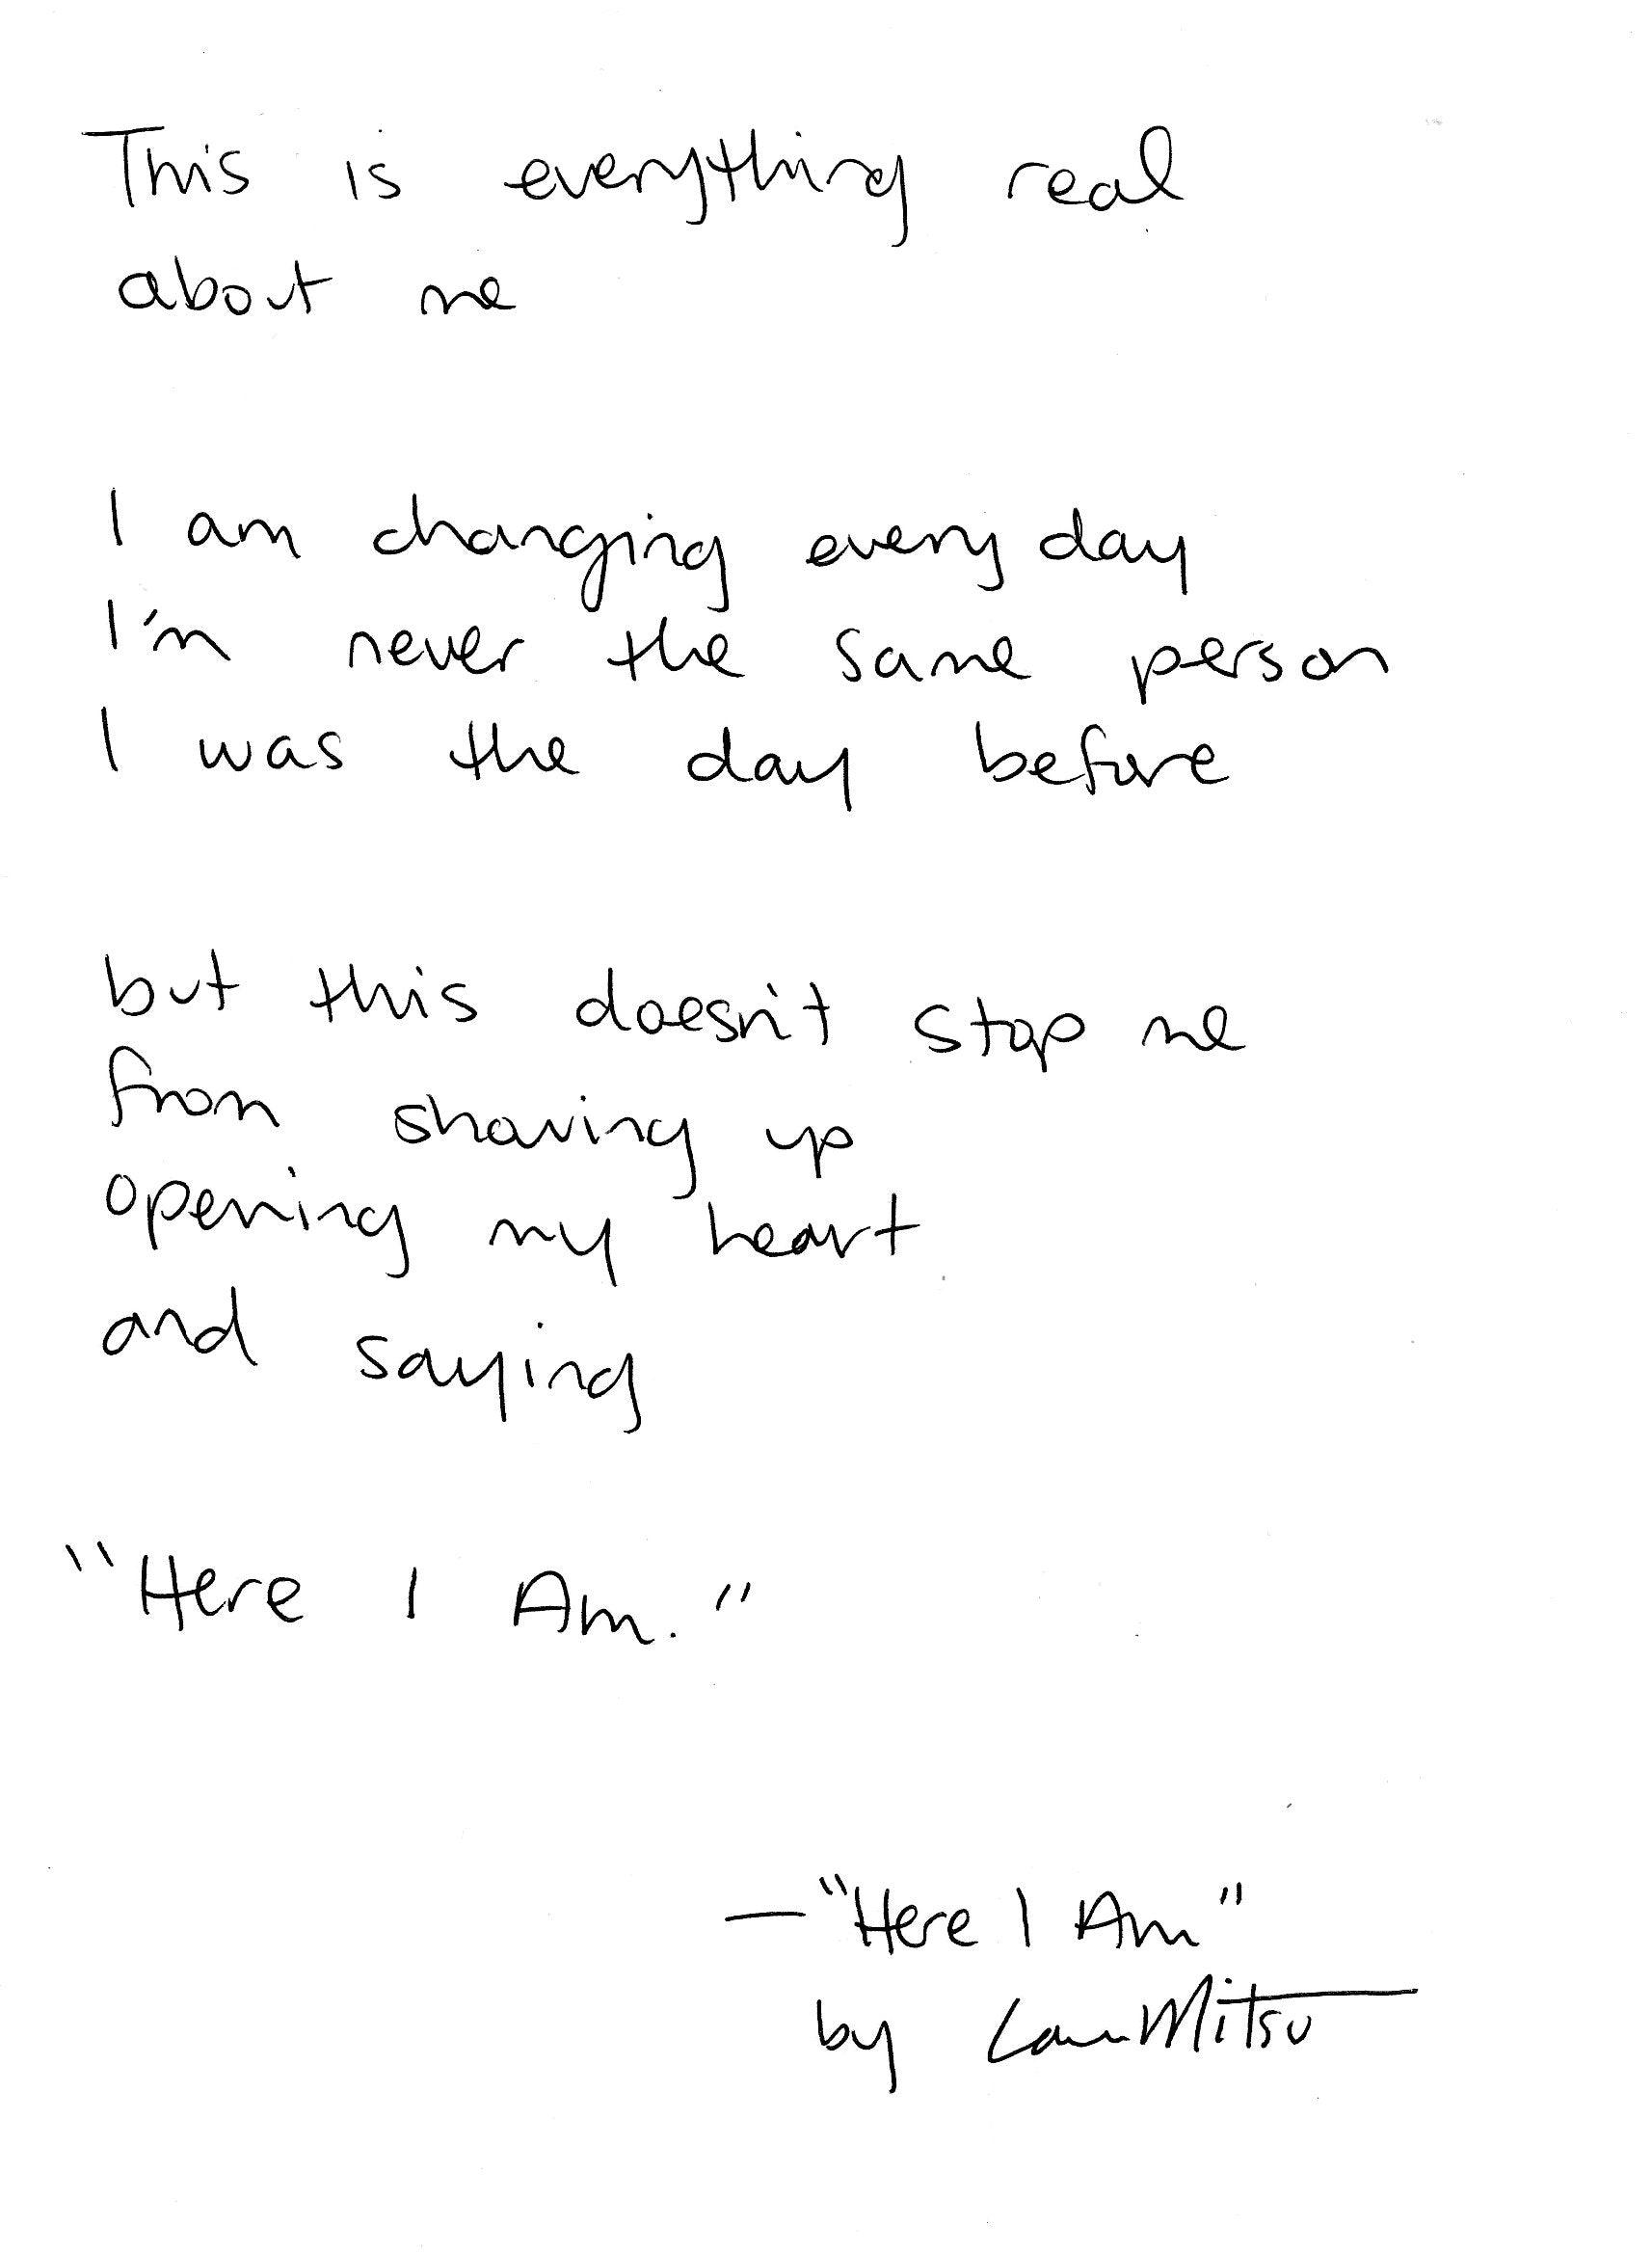 This is everything real
about me
I am changing every day
I'm never the same person
I was the day before
but this doesn't stop me
from showing up
opening my heart
and saying
"Here I Am."
—"Here I Am"
by Mitsu